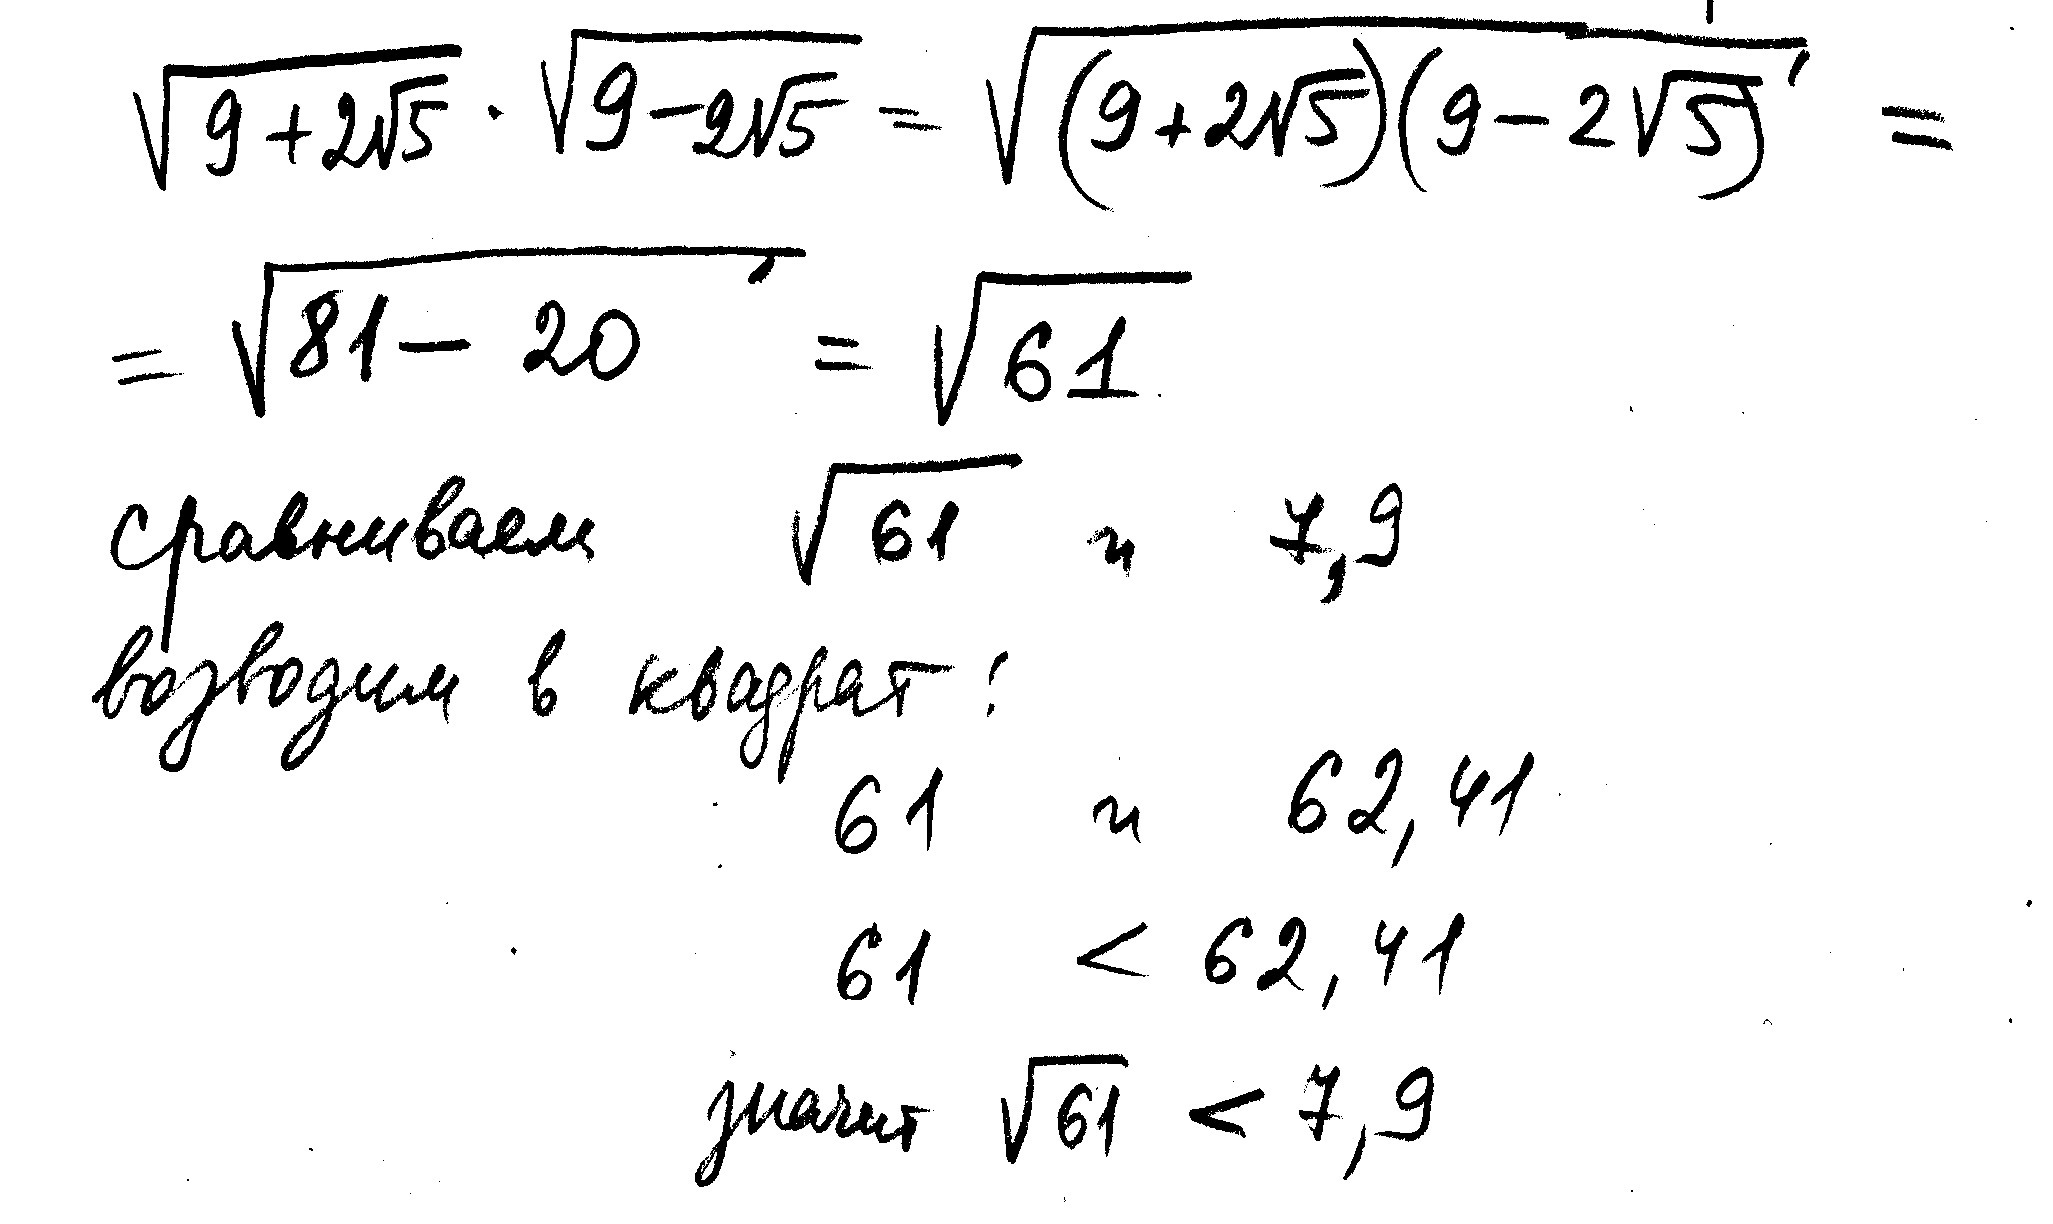 √9+2√5 · √9-2√5 = √(9+2√5)(9-2√5) =
= √81-20 = √61
сравниваем √61 и 7,9
возводим в квадрат:
61 и 62,41
61 < 62,41
значит √61 < 7,9